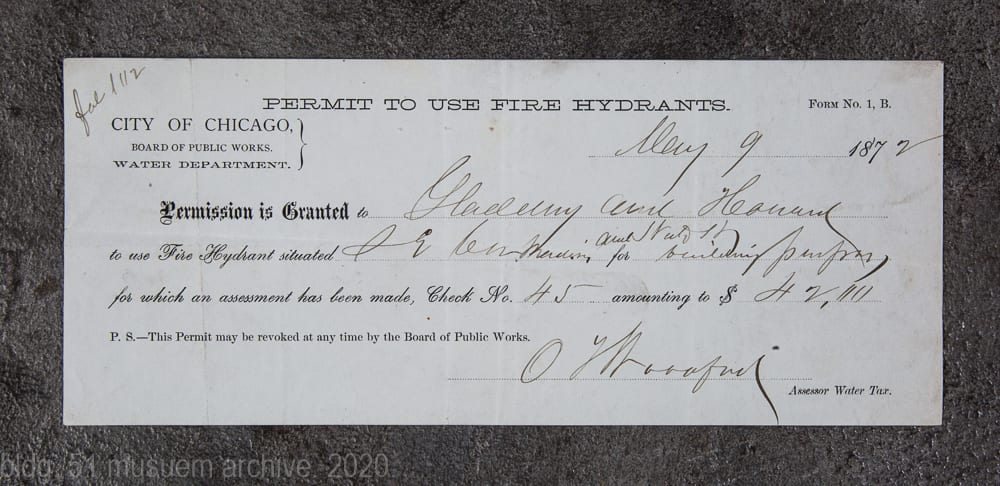 PERMIT TO USE FIRE HYDRANTS.
FORM NO. 1, B.
CITY OF CHICAGO,
BOARD OF PUBLIC WORKS.
WATER DEPARTMENT.
May 9 1872
Permission is Granted to and Howard
to use Fire Hydrant situated S E Cor and for building
for which an assessment has been made, Check No. 45 amounting to $ 42,
P. S.—This Permit may be revoked at any time by the Board of Public Works.
O
Assessor Water Tax.
bldg. 51 musuem archive 2020